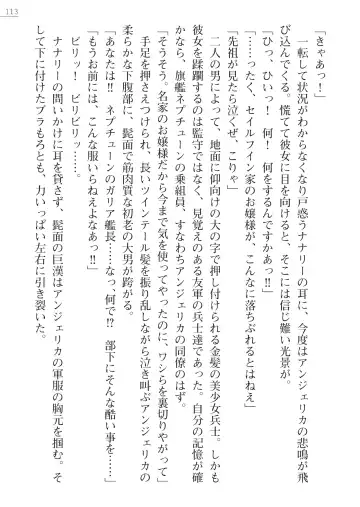 113
「きゃあっ！」
一転して状況がわからなくなり戸惑うナナリーの耳に、今度はアンジェリカの悲鳴が飛
び込んでくる。慌てて彼女に目を向けると、そこには信じ難い光景が。
「ひっ、ひいっ！　何！　何をするんですかあっ‼」
「……ったく、セイルフィン家のお嬢様が、こんなに落ちぶれるとはねえ」
「先祖が見たら泣くぜ、こりゃ」
二人の男によって、地面に仰向けの大の字で押し付けられる金髪の美少女兵士。しかも
彼女を蹂躙するのは監守ではなく、見覚えのある友軍の兵士達であった。自分の記憶が確
かなら、旗艦ネプチューンの乗組員、すなわちアンジェリカの同僚のはず。
「そうそう。名家のお嬢様だから今まで気を使ってやったのに、ワシらを裏切りやがって」
手足を押さえつけられ、長いツインテール髪を振り乱しながら泣き叫ぶアンジェリカの
柔らかな下腹部に、髭面で筋肉質な初老の大男が跨がる。
「あなたは‼　ネプチューンのガリア艦長……なっ、何で⁉　部下にそんな酷い事を……」
「もうお前には、こんな服いらねえよなあっ‼」
ビリッ！　ビリビリッ……。
ナナリーの問いかけに耳を貸さず、髭面の巨漢はアンジェリカの軍服の胸元を掴む。そ
して下に付けたブラもろとも、力いっぱい左右に引き裂いた。